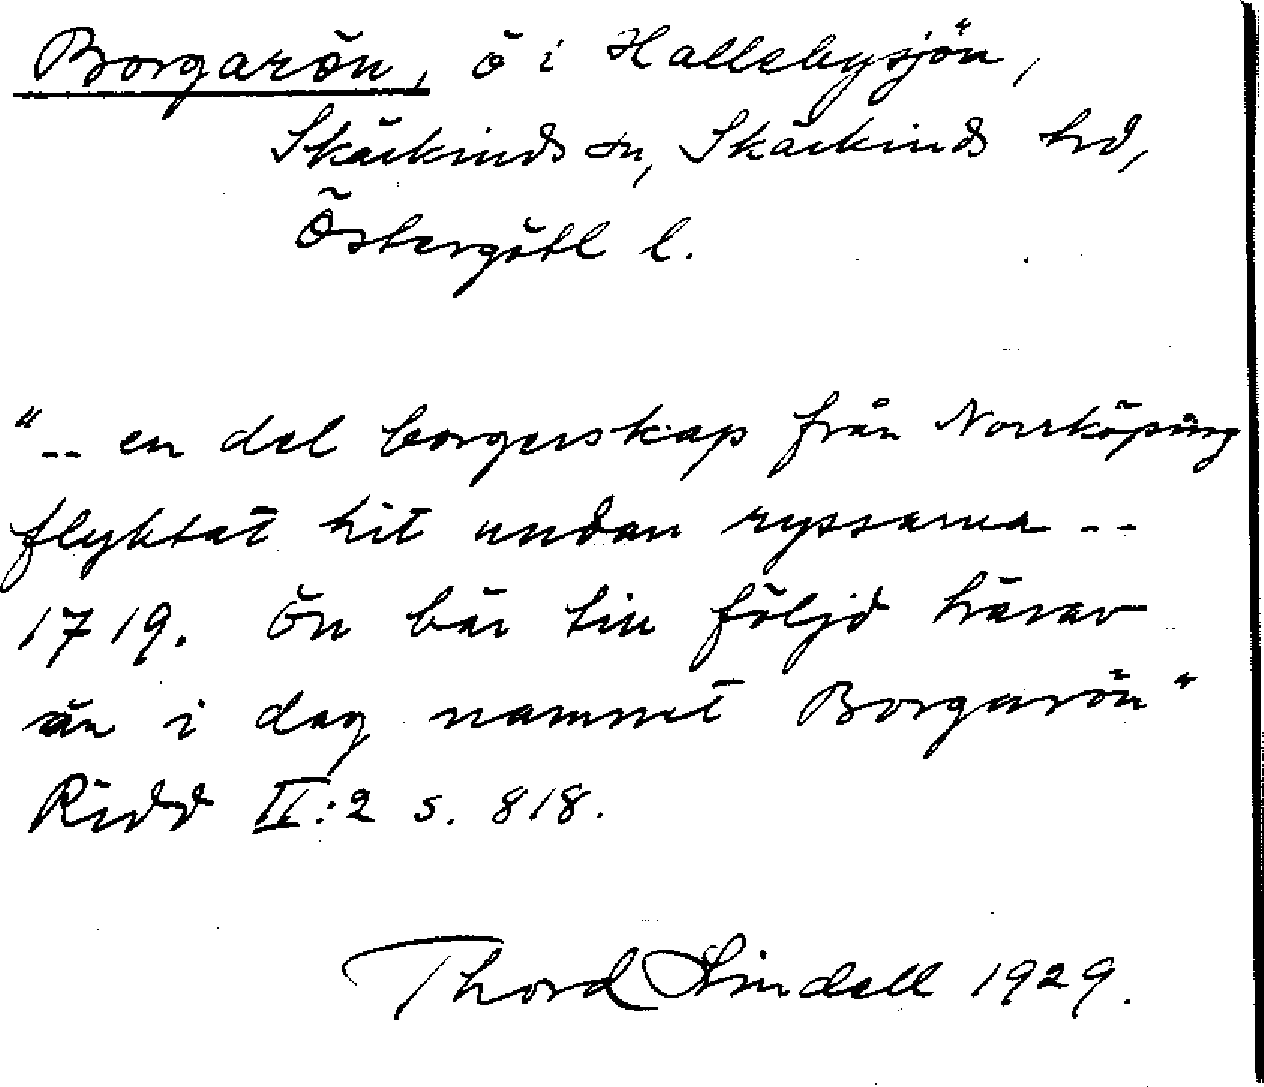 Borgarön, ö i Hallebysjön,
Skärkinds sn, Skärkinds hd,
Östergötl l.
".. en del borgerskap från Norrköping
flyktat hit undan ryssarna --
1719. Ön bär till följd härav
än i dag namnet Borgarön"
Ridd II:2 s. 818.
Thord Lindell 1929.